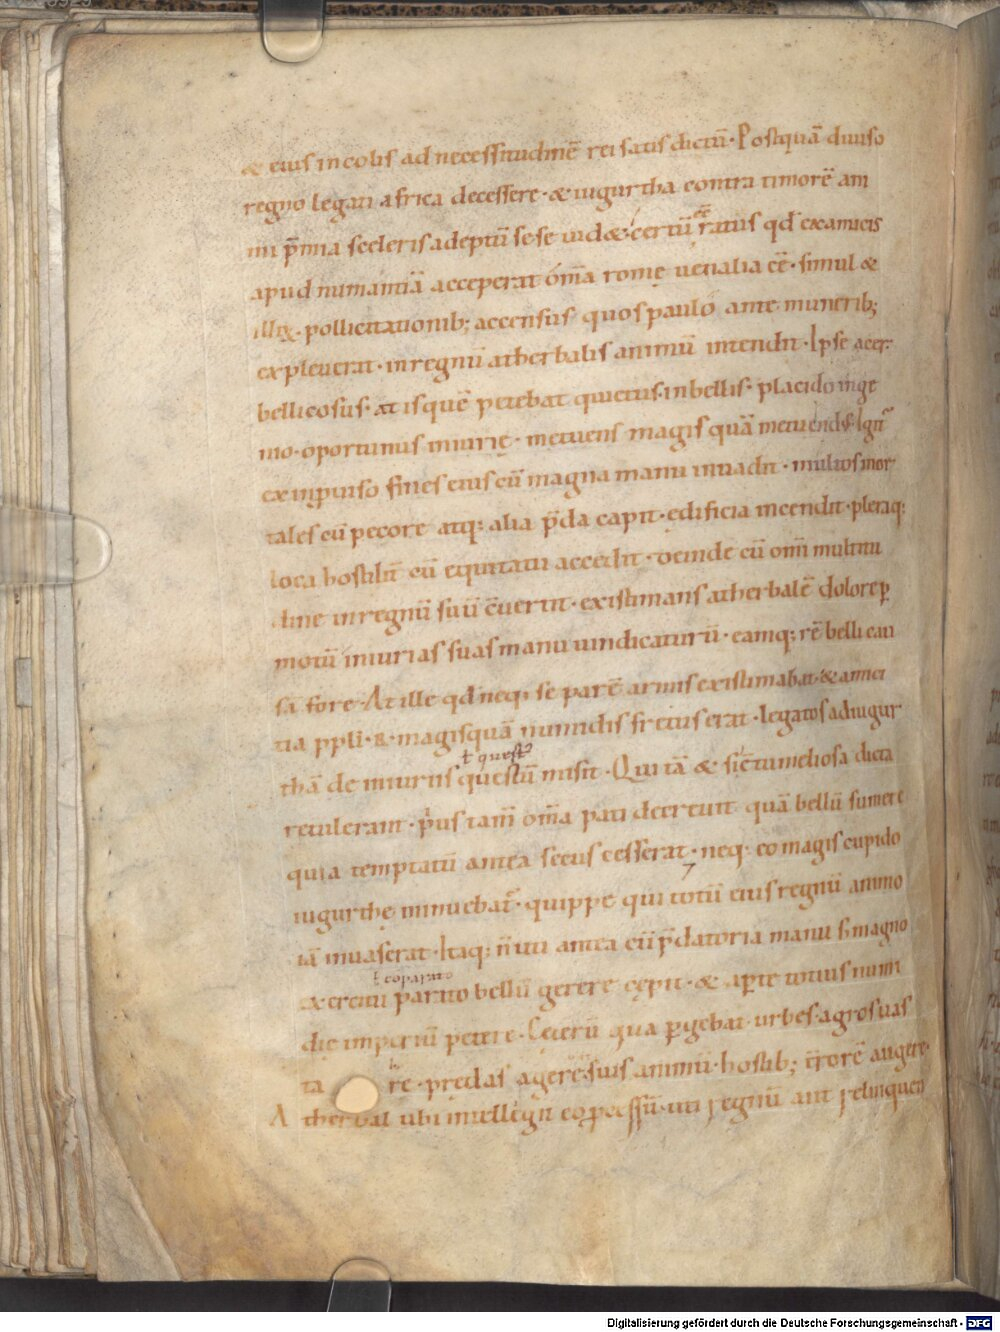 & eius incolis ad necessitudinē rei satis dictū. Postquā diuiso
regno legati africa decessere. & iugurtha contra timorē ani
mi p̄mia sceleris adeptū sese uid& certū ratus qđ ex amicis
apud numantiā acceperat om̄a romę uenalia eē. simul &
illis pollicitationib; accensus quos paulo ante munerib;
expleuerat. in regnū atherbalis animū intendit. Ipse acer.
bellicosus. at is quē petebat quietus. inbellis. placido inge
nio. oportunus iniurię. metuens magis quā metuendus. Igit᷑
ex inprouiso fines eius cū magna manu inuadit. multos mor
tales cū pecore atq; alia p̄da capit. edificia incendit. pleraq;
loca hostilit᷑ cū equitatu accedit. deinde cū om̄i multitu
dine in regnū suū c̄uertit. existimans atherbalē dolore ꝑ
motū iniurias suas manu uindicaturū. eamq; rē belli cau
sā fore. At ille qđ neq; se parē armis existimabat. & amici
tia p ppli. R. magis quā numidis fretus erat. legatos ad iugur
ł questū
thā de iniuriis questū misit. Qui tā & si c̄tumeliosa dicta
retulerant. p̄us tam̄ om̄a pati decreuit quā bellū sumere
quia temptatū antea secus cesserat. neq; eo magis cupido
iugurthę minuebat᷑. quippe qui totū eius regnū animo
iā inuaserat. Itaq; n̄ uti antea cū p̄datoria manu. s; magno
ł cōparato
exercitu parato bellū gerere cępit. & aꝑte totius numi
dię imperiū petere. Ceterū qua ꝑgebat. urbes agros uas
ta re. predas agere. suis animū. hostib; t̄rorē augere.
Atherbal ubi intellegit eo processū. uti regnū aut relinquen
Digitalisierung gefördert durch die Deutsche Forschungsgemeinschaft - DFG